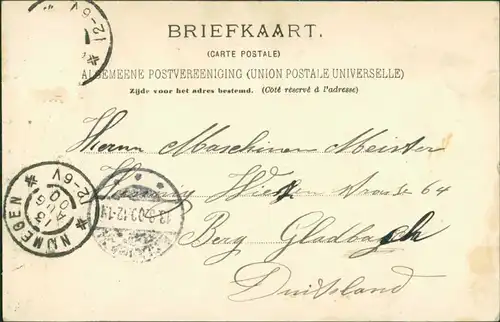 BRIEFKAART.
(CARTE POSTALE)
ALGEMEENE POSTVEREENIGING (UNION POSTALE UNIVERSELLE)
Zijde voor het adres bestemd. (Côté réservé à l'adresse)
12-6V
Herrn Maschinen Meister
strasse 64
Berg Gladbach
Duitsland
NIJMEGEN
12-6V
AUG